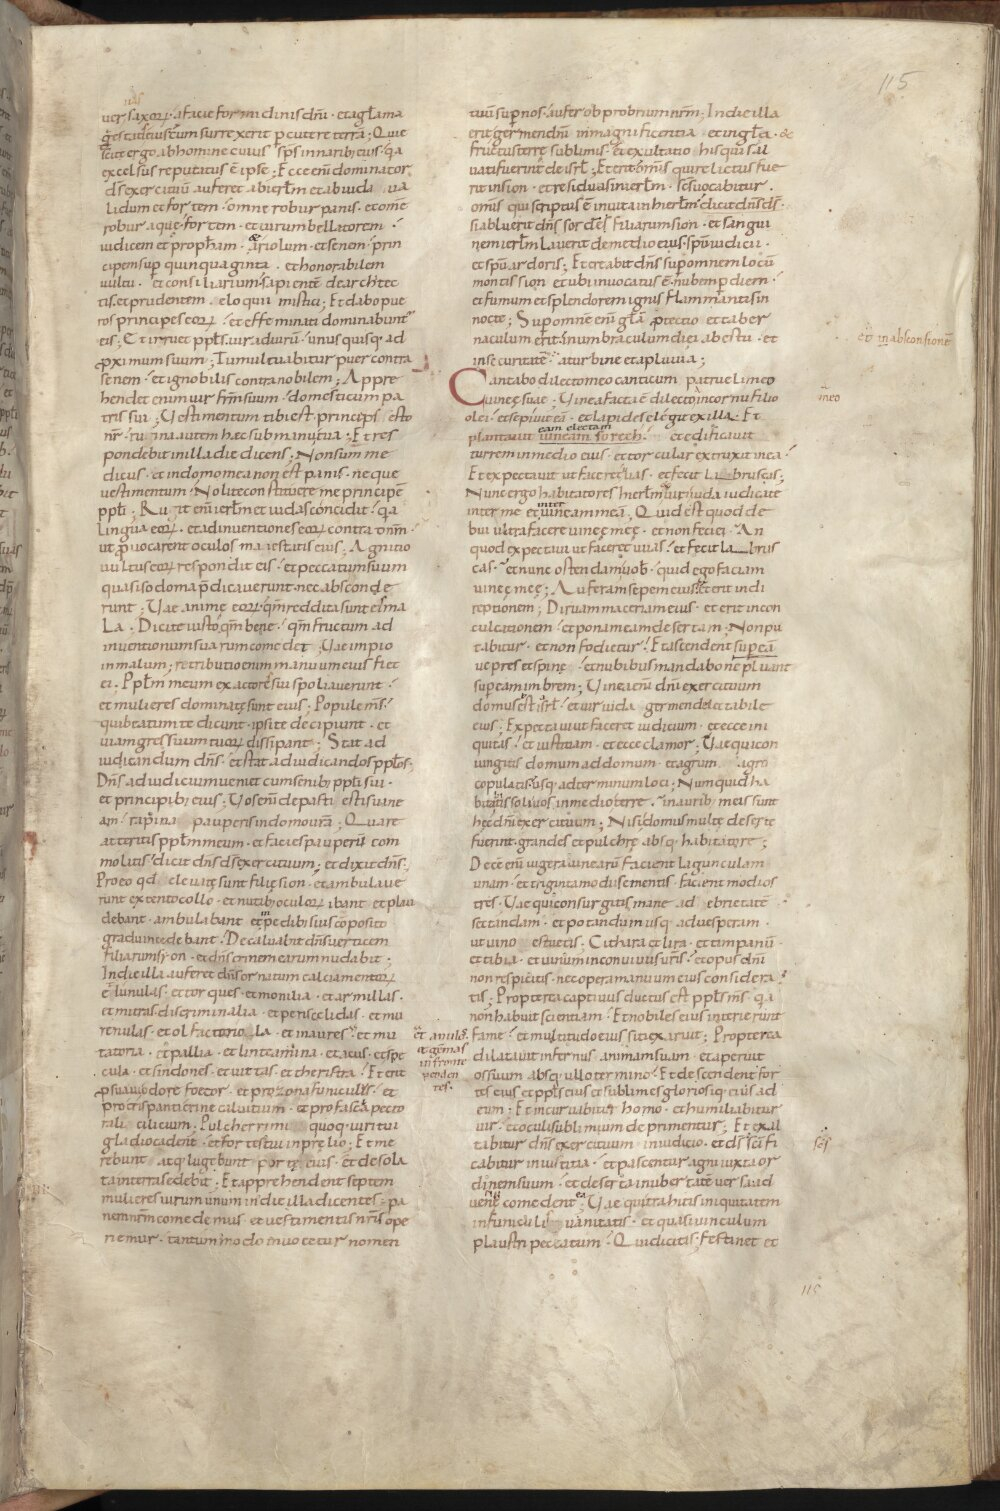 115
uersaxorũ · afacie formidinis dñi · et agła ma
gestatis eius cum surrexerit pcutere terrã; Quie
scite ergo ab homine cuius sp̃s in naribus eius · qa
excelsus reputatus ẽ ipse; Ecce enĩ dominator
dñs exercituũ auferet ab ierłm et a iuda · ua
lidum et fortem · omne robur panis · et omne
robur aque · fortem · et uirum bellatorem ·
iudicem et propham · ariolum · et senem · prin
cipem sup quinquaginta · et honorabilem
uultu · et consiliarium · sapientẽ de architec
tis · et prudentem eloquii mistici; Et dabo pue
ros principes eorũ · et effeminati dominabunt̃
eis; Et irruet ppłs uir ad uirũ · unus quisq ad
proximum suum; Tumultuabitur puer contra
senem · et ignobilis contra nobilem; Appre
hendet enim uir frm̃ suum · domesticum pa
tris sui; Vestimentum tibi est · princeps esto
nr̃ · ruina autem haec sub manu tua; Et res
pondebit in illa die dicens; Non sum me
dicus · et in domo mea non est panis · neque
uestimentum · Nolite constituere me principẽ
ppłi; Ruit enĩ ierłm et iudas concidit · qa
lingua eorũ · et adinuentiones eorũ contra dnm̃ ·
ut puocarent oculos maiestatis eius; Agnitio
uultus eorũ respondit eis · et peccatum suum
quasi sodoma pdicauerunt · nec absconde
runt; Vae anime eorũ · qm̃ reddita sunt eis ma
la · Dicite iusto qm̃ bene · qm̃ fructum ad
inuentionum suarum comedet; Vae impio
in malum; retributio enim manuum eius fiet
ei · Ppłm meum exactores sui spoliauerunt ·
et mulieres dominatę sunt eius; Popule ms̃ ·
qui beatum te dicunt · ipsi te decipiunt · et
uiam gressuum tuorũ dissipant; Stat ad
iudicandum dñs · et stat ad iudicandos ppłos ·
Dñs ad iudicium ueniet cum senibus ppłi sui ·
et principibus eius; Vos enĩ depasti estis uine
am · rapina pauperis in domo urã; Quare
atteritis ppłm meum · et facies pauperũ com
molitis · dicit dñs ds̃ exercituum; et dixit dñs;
Pro eo qd eleuatę sunt filię sion · et ambulaue
runt extento collo · et nutibus oculorũ ibant et plau
debant · ambulabant et in pedibus suis cõposito
gradu incedebant · Decaluabit dñs uerticem
filiarum sion · et dñs crinem earum nudabit ·
In die illa auferet dñs ornatum calciamentorũ
et lunulas · et torques · et monilia · et armillas ·
et mitras · discriminalia · et periscelidas · et mu
renulas · et olfactoriola · et inaures · et mu
tatoria · et pallia · et linteamina · et acus · et spe
cula · et sindones · et uittas · et theristra · Et erit
p suaui odore foetor · et pro zona funiculus · et
pro crispanti crine caluitium · et pro fascia pecto
rali cilicium · Pulcherrimi quoq uiri tui
gladio cadent · et fortes tui in prelio; Et me
rebunt atq lugebunt portę eius · et desola
ta in terra sedebit; Et apprehendent septem
mulieres uirum unum in die illa dicentes · pa
nem nr̃m comedemus · et uestimentis nr̃is ope
riemur · tantummodo inuocetur nomen
et anulos
et gemas
in fronte
penden
tes ·
tuũ sup nos · aufer obprobrium nrm̃; In die illa
erit germen dñi in magnificentia · et in gła · &
fructus terre sublimis · et exultatio his qui sal
uati fuerint de isrł; Et erit omnis qui relictus fue
rit in sion · et residuus in ierłm · scs̃ uocabitur ·
omnis qui scriptus ẽ in uita in hierłm · dicit dñs ds̃ ·
si abluerit dñs sordes filiarum sion · et sangui
nem ierłm lauerit de medio eius · spũ iudicii ·
et spũ ardoris; Et creabit dñs sup omnem locũ
montis sion · et ubi inuocatus ẽ · nubem p diem ·
et fumum et splendorem ignis flammantis in
nocte; Sup omnẽ enĩ głã ptectio · et taber
naculum erit in umbraculum diei ab estu · et
in securitatẽ · a turbine et a pluuia;
et in absconsionẽ
Cantabo dilecto meo canticum patruelis mei
uineę suae · Vinea facta ẽ dilecto in cornu filio
meo
olei · et sepiuit eã · et lapides elegit ex illa · Et
eam electam
plantauit uineam sorech · et edificauit
turrem in medio eius · et torcular extruxit in ea ·
Et expectauit ut faceret uuas · et fecit labruscas;
Nunc ergo habitatores hierłm et uiri iuda iudicate
inter me et inter uineam meã; Quid est quod de
bui ultra facere uineę meę · et non feci ei · An
quod expectaui ut faceret uuas · et fecit labrus
cas · et nunc ostendam uob · quid ego faciam
uineę meę; Auferam sepem eius · et erit in di
reptionem; Diruam maceriam eius · et erit in con
culcationem · et ponam eam desertam; Non pu
tabitur · et non fodietur · Et ascendent sup eã
uepres et spinę · et nubibus mandabo ne pluant
sup eam imbrem; Vinea enĩ dñi exercituum
domus est isrł · et uir iuda germen delectabile
eius; Expectaui ut faceret iudicium · et ecce ini
quitas · et iustitiam · et ecce clamor; Vae qui con
iungitis domum ad domum · et agrum agro
copulatis · usq ad terminum loci; Numquid ha
bitabitis soli uos in medio terre · in auribus meis sunt
hęc dñi exercituum; Nisi domus multe deserte
fuerint · grandes et pulchrę absq habitatore;
Decẽ enĩ iugera uinearũ facient lagunculam
unam · et triginta modii sementis facient modios
tres · Vae qui consurgitis mane ad ebrietatẽ
sectandam · et potandum usq ad uesperam ·
ut uino estuetis; Cithara et lira · et timpanũ ·
et tibia · et uinum in conuiuiis uris̃ · et opus dñi
non respicitis · nec opera manuum eius considera
tis; Propterea captiuus ductus est ppłs ms̃ · qa
non habuit scientiam · Et nobiles eius interierunt
fame · et multitudo eius siti exaruit; Propterea
dilatauit infernus animam suam · et aperuit
os suum absq ullo termino · Et descendent for
tes eius et ppłs eius et sublimes gloriosiq eius ad
eum · Et incuruabitur homo · et humiliabitur
uir · et oculi sublimium deprimentur; Et exal
tabitur dñs exercituum in iudicio · et ds̃ scs̃ scĩfi
scs̃
cabitur in iustitia · et pascentur agni iuxta or
dinem suum · et deserta in ubertatẽ uersa ad
uenę comedent; Vae qui trahitis iniquitatem
in funiculis uanitatis · et quasi uinculum
plaustri peccatum · Qui dicitis · festinet et
115